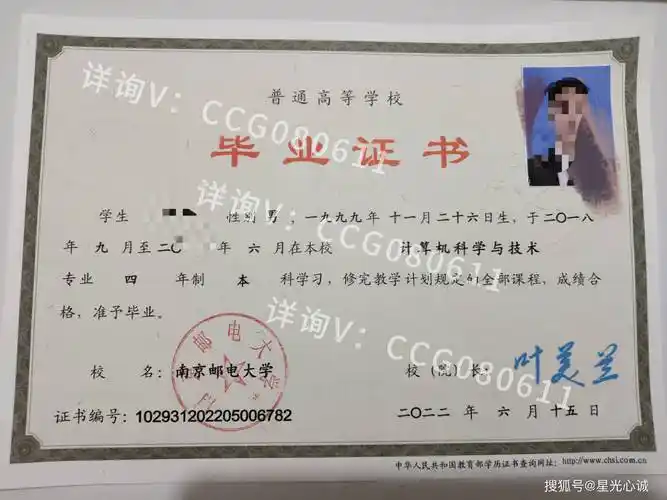 普通高等学校
毕业证书
详询V：CCG080611
学生 性别 男，一九九九年 十一月 二十六日生，于二〇一八
详询V：CCG080611
年 九 月至 二〇 年 六 月在本校 计算机科学与技术
专业 四 年制 本 科学习，修完教学计划规定的全部课程，成绩合
格，准予毕业。
详询V：CCG080611
邮电大学
校 名：南京邮电大学 校（院）长：叶美兰
证书编号：102931202205006782 二〇二二 年 六 月 十五 日
中华人民共和国教育部学历证书查询网址：http://www.chsi.com.cn
搜狐号@星光心诚